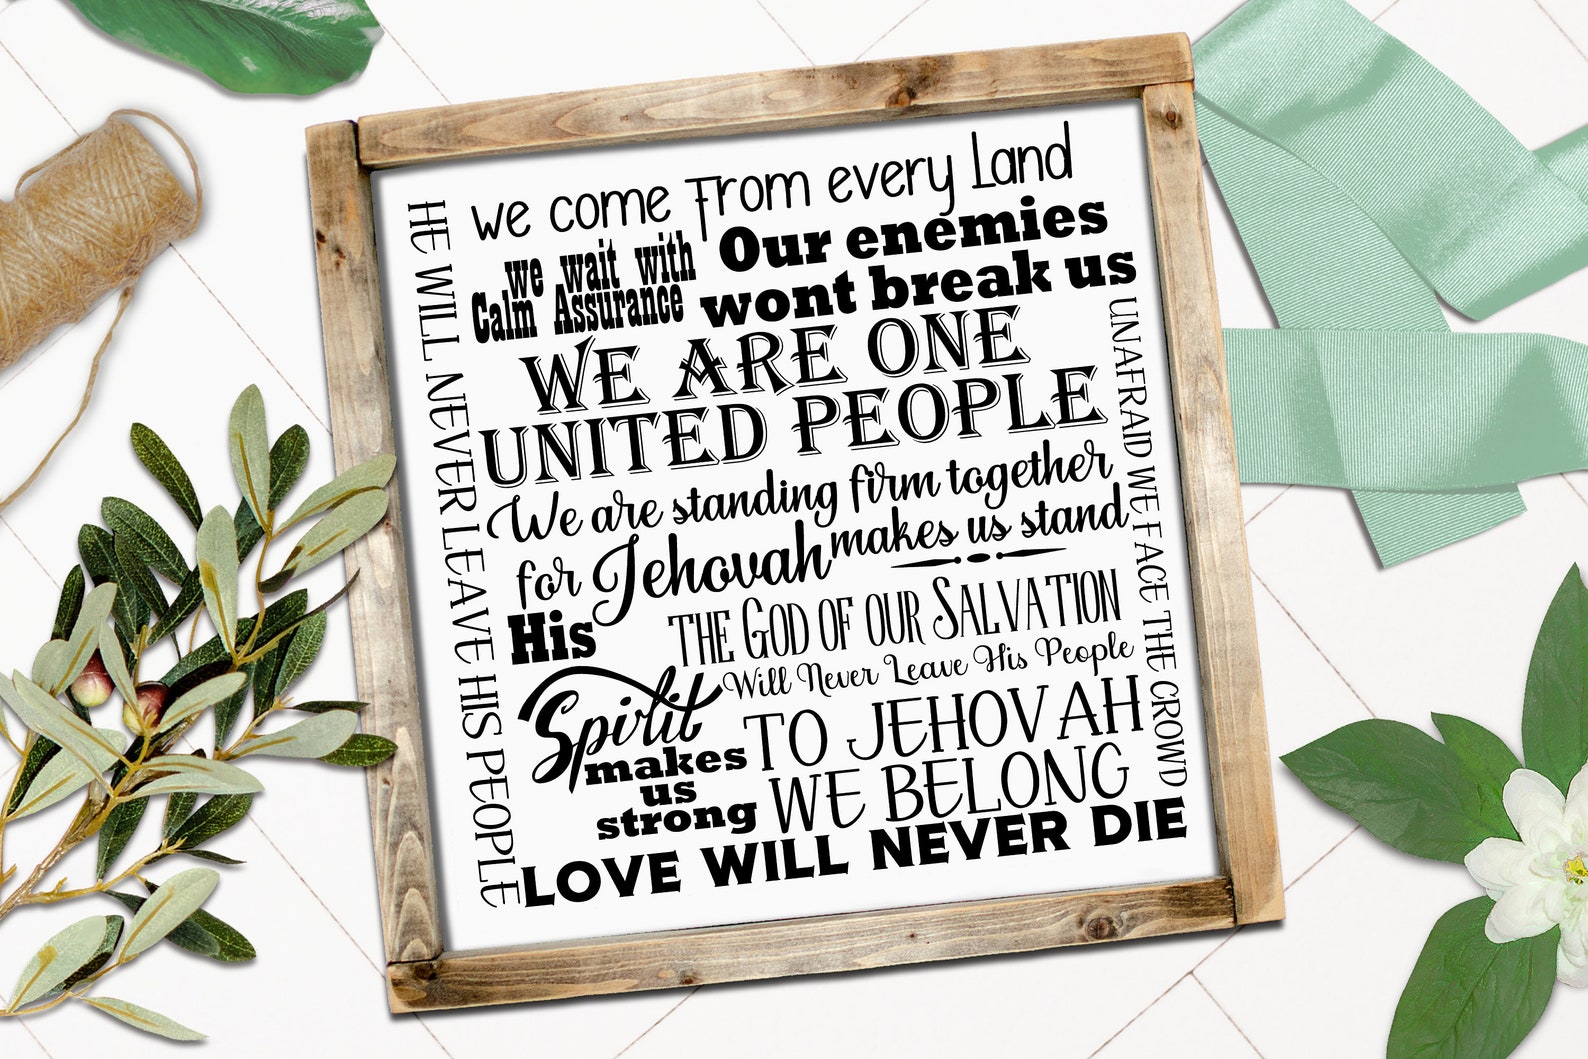 HE WILL NEVER LEAVE HIS PEOPLE
we come From every Land
we wait with
Calm Assurance
Our enemies
wont break us
WE ARE ONE
UNITED PEOPLE
We are standing firm together
for Jehovah makes us stand
His
Spirit
makes
us
strong
THE GOD OF OUR SALVATION
Will Never Leave His People
TO JEHOVAH
WE BELONG
LOVE WILL NEVER DIE
UNAFRAID WE FACE THE CROWD